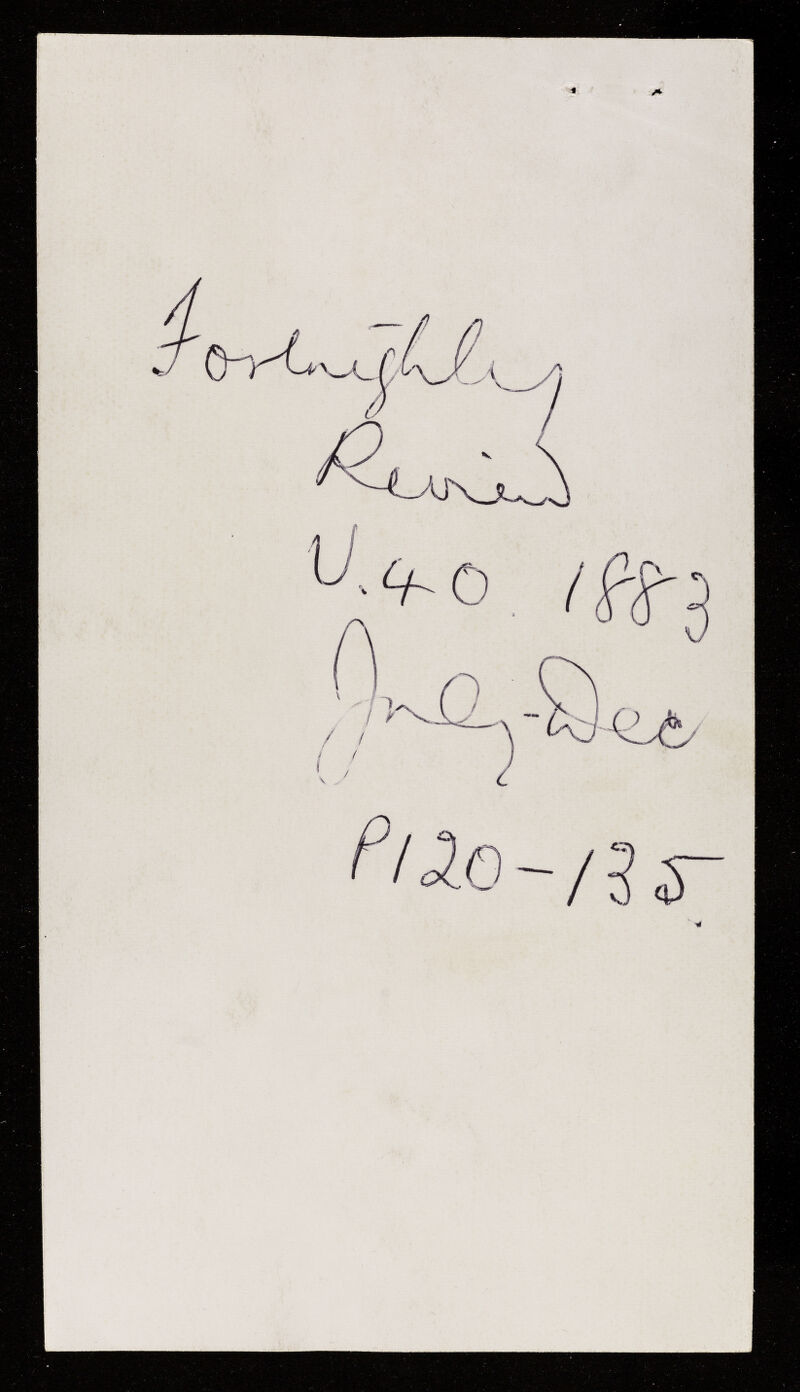 Fortnightly
Review
V.40 1883
July-Dec
P120-135.